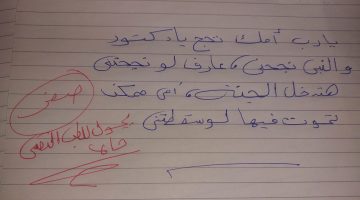 يارب أمك تنجح يا دكتور
والنبي نجحني، عارف لو نجحتني
هتدخل الجنة، أمي ممكن
تموت فيها لو سقطتني
صفر
يحول للطب النفسي